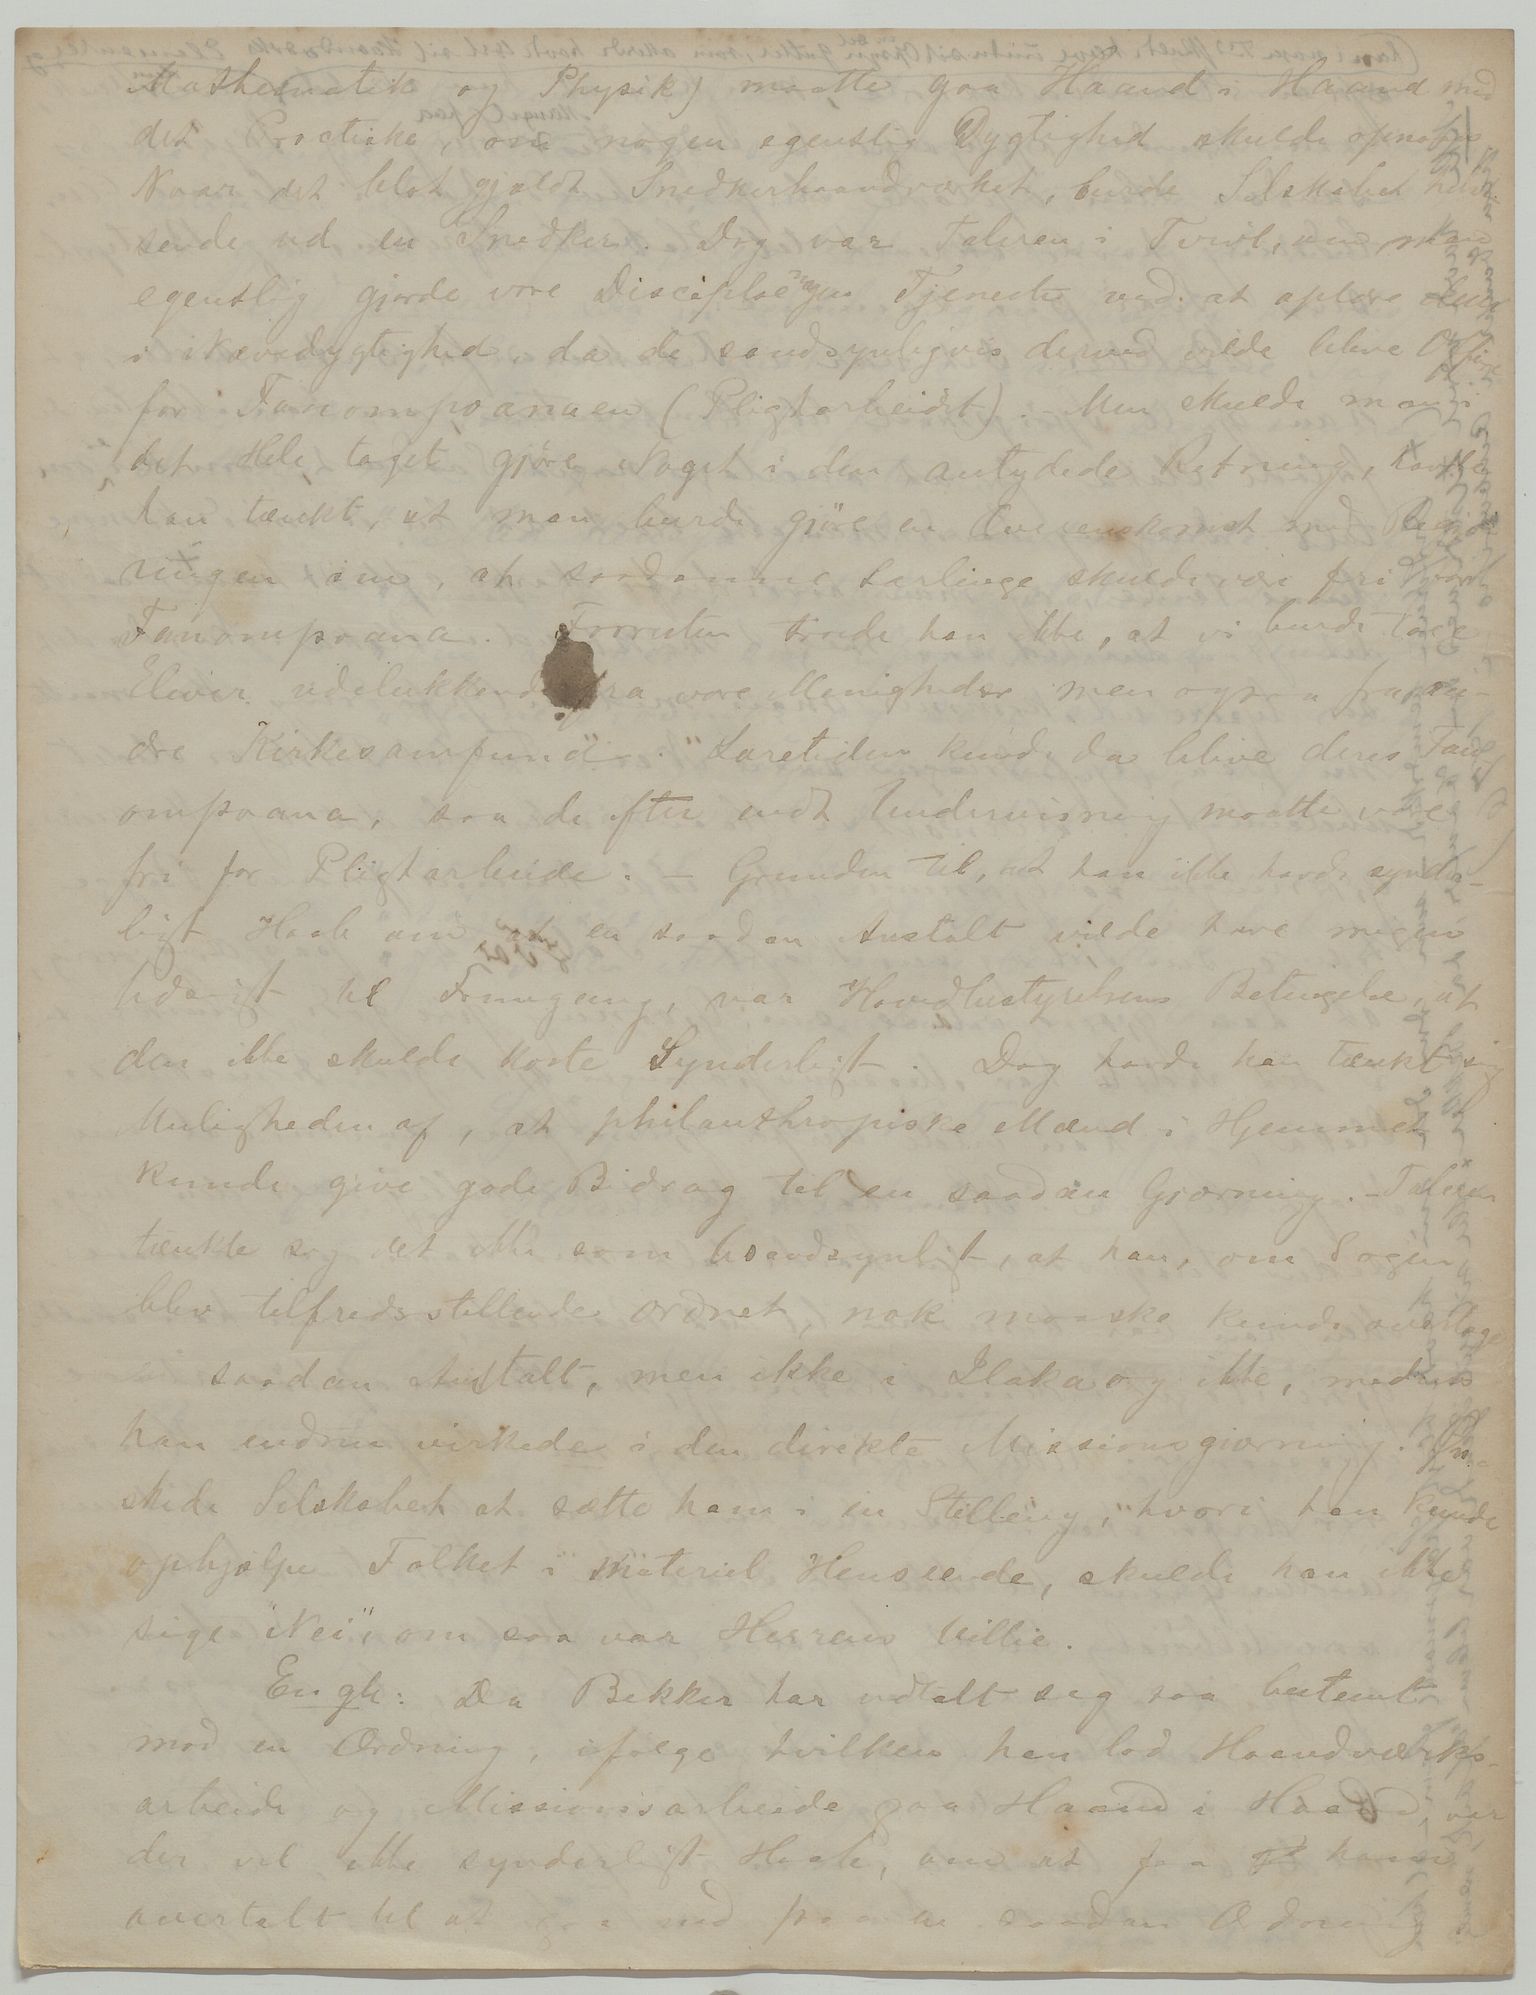 Mathematik og Physik) maatte gaa Haand i Haand med
det Practiske, om nogen egentlig Dygtighed skulde opnaaes.
Naar det blot gjaldt Snedkerhaandværket, burde Selskabet
sende ud en Snedker. Dog var Taleren i Tvivl, om man
egentlig gjorde vore Disciple nogen Tjeneste ved at oplære dem
i Nævedygtighed, da de sandsynligvis derved vilde blive Offere
for Fanompoanaen (Pligtarbeidet). – Men skulde man i
det Hele taget gjöre Noget i den antydede Retning, havde
han tænkt, at man burde gjöre en Overenskomst med Reg-
ringen om, at saadanne Lærlinge skulde være fri for
Fanompoana. Foruden troede han ikke, at vi burde tage
Elever udelukkende fra vore Menigheder men ogsaa fra an-
dre Kirkesamfund. Læretiden kunde da blive deres Fan-
ompoana, saa de efter endt Undervisning maatte være
fri for Pligtarbeide. – Grunden til, at han ikke havde synder-
ligt Haab om at en saadan Anstalt vilde have megen
Udsigt til Fremgang, var Hovedbestyrelsens Betingelse, at
den ikke skulde koste Synderligt. Dog havde han tænkt sig
Muligheden af, at philanthropiske Mænd i Hjemmet
kunde give gode Bidrag til en saadan Gjerning. – Taleren
tænkte sig det ikke som usandsynligt, at han, om Sagen
blev tilfredsstillende ordnet, nok maaske kunde overtage
saadan Anstalt, men ikke i Ilaka og ikke, medens
han endnu virkede i den direkte Missionsgjerning. Øn-
skede Selskabet at sætte ham i en Stilling, hvori han kunde
ophjælpe Folket i materiel Henseende, skulde han ikke
sige "Nei", om saa var Herrens Villie.
Engh: Da Bekker har udtalt sig saa bestemt
mod en Ordning, ifølge hvilken han lod Haandværks-
arbeide og Missionsarbeide gaa Haand i Haand, var
der vel ikke synderligt Haab, om at faa ham
overtalt til at gaa ind paa en saadan Ordning